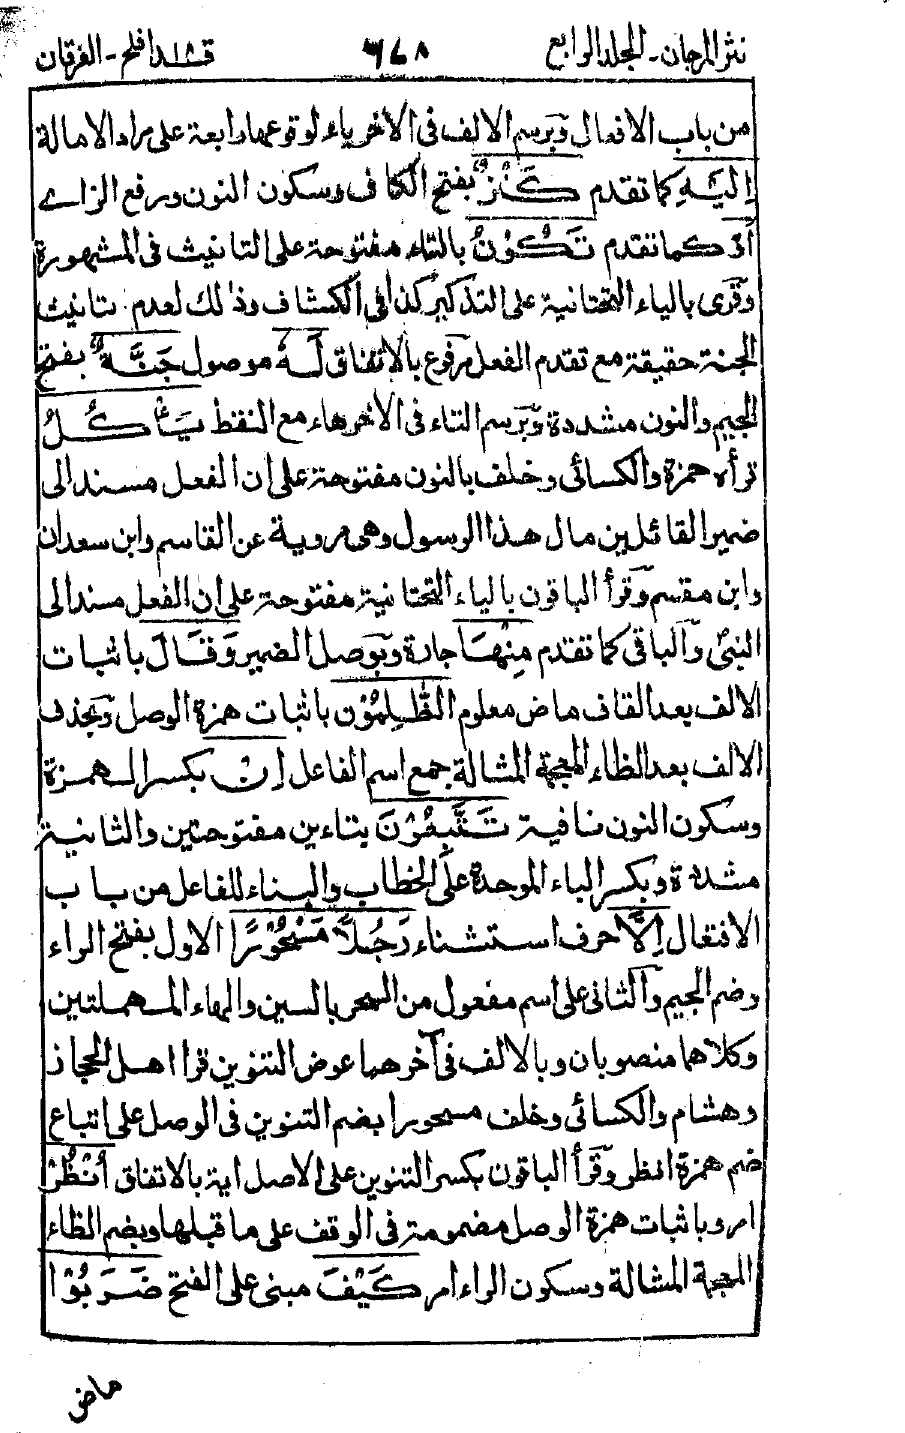 نثر المرجان - المجلد الرابع ٦٦٨ قد افلح - الفرقان
من باب الافعال وبرسم الالف فى الاخر ياء لوقوعها رابعة على مراد الامالة
اِلَيْهِ كما تقدم كَنْزٌ بفتح الكاف وسكون النون ورفع الزاے
اَوْ كما تقدم تَكُوْنُ بالتاء مفتوحة على التانيث فى المشهورة
وقرى بالياء التحتانية على التذكير كذا فى الكشاف وذلك لعدم تانيث
الجنة حقيقة مع تقدم الفعل مرفوع بالاتفاق لَهٗ موصول جَنَّةٌ بفتح
الجيم والنون مشددة وبرسم التاء فى الاخر هاء مع النقط يَاْكُلُ
قرأه حمزة والكسائى وخلف بالنون مفتوحة على ان الفعل مسند الى
ضمير القائلين مال هذا الرسول وهى مروية عن القاسم وابن سعدان
وابن مقسم وقرأ الباقون بالياء التحتانية مفتوحة على ان الفعل مسند الى
النبى والباقى كما تقدم مِنْهَا جارة وبوصل الضمير وَقَالَ باثبات
الالف بعد القاف ماض معلوم الظّٰلِمُوْنَ باثبات همزة الوصل وبحذف
الالف بعد الظاء المعجمة المشالة جمع اسم الفاعل اِنْ بكسر الهمزة
وسكون النون نافية تَتَّبِعُوْنَ بتاءين مفتوحتين والثانية
مشددة وبكسر الباء الموحدة على الخطاب والبناء للفاعل من باب
الافتعال اِلَّا حرف استشناء رَجُلًا مَّسْحُوْرًا الاول بفتح الراء
وضم الجيم والثانى على اسم مفعول من السحر بالسين والحاء المهملتين
وكلاهما منصوبان وبالالف فى آخرهما عوض التنوين قرا اهل الحجاز
وهشام والكسائى وخلف مسحورا بضم التنوين فى الوصل على اتباع
ضم همزة انظر وقرأ الباقون بكسر التنوين على الاصل اية بالاتفاق اُنْظُرْ
امر وباثبات همزة الوصل مضمومة فى الوقف على ما قبلها وبضم الظاء
المعجمة المشالة وسكون الراء امر كَيْفَ مبنى على الفتح ضَرَبُوْا
ماض